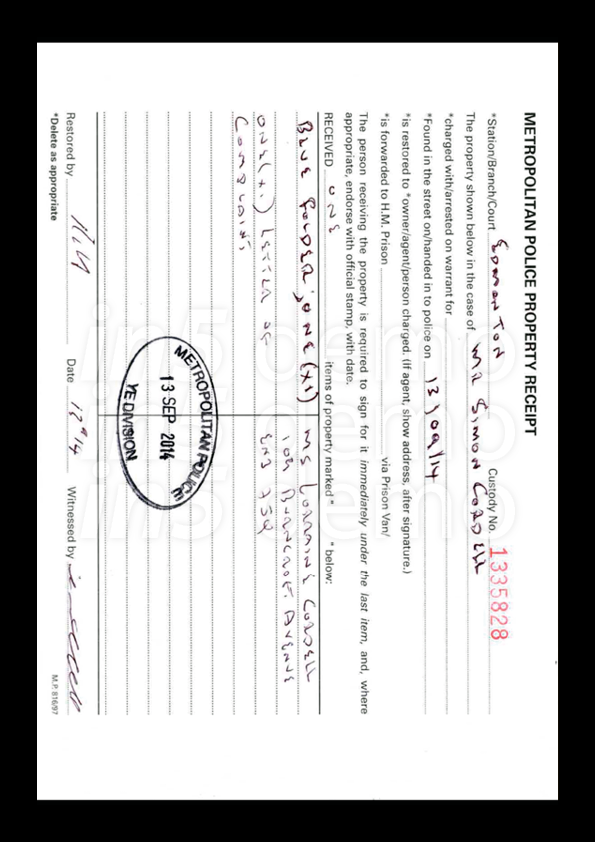 METROPOLITAN POLICE PROPERTY RECEIPT
*Station/Branch/Court EDMONTON Custody No. 1335828
The property shown below in the case of MR SIMON CORDELL
*charged with/arrested on warrant for
*Found in the street on/handed in to police on 13/09/14
*is restored to *owner/agent/person charged. (If agent, show address, after signature.)
*is forwarded to H.M. Prison via Prison Van/
The person receiving the property is required to sign for it immediately under the last item, and, where
appropriate, endorse with official stamp, with date.
RECEIVED ONE items of property marked " " below:
BLUE FOLDER, ONE (X1) MS LORRAINE CORDELL
ONE (X1) LETTER OF 109 BURNCROFT AVENUE
COMPLAINT, EN3 7JQ
METROPOLITAN POLICE
13 SEP 2014
YE DIVISION
Restored by Date Witnessed by
*Delete as appropriate M.P. 816/97
in5 demo
in5 demo
in5 demo